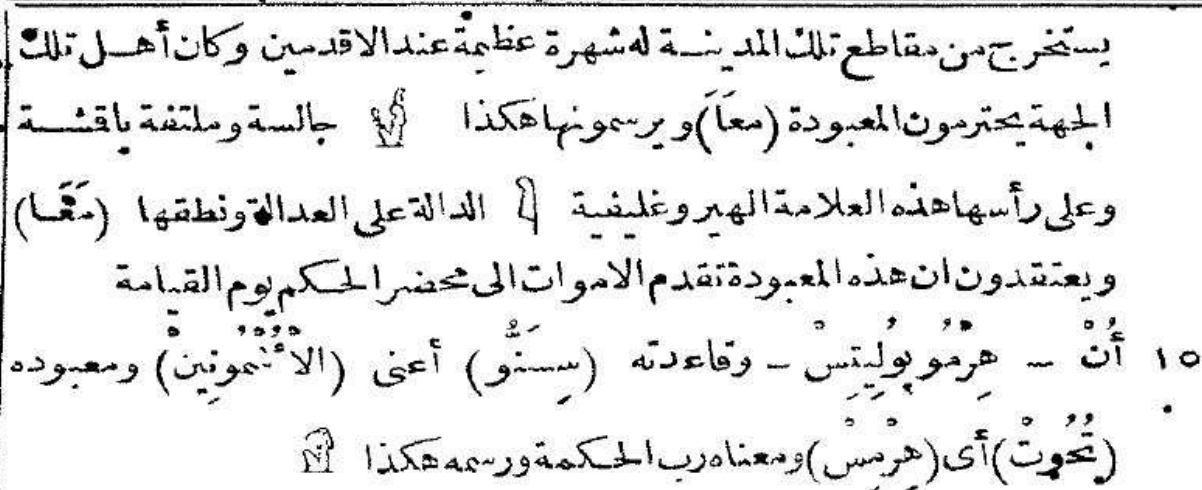 يستخرج من مقاطع تلك المدينة له شهرة عظيمة عند الاقدمين وكان أهل تلك
الجهة يحترمون المعبودة (معَاَ) ويرسمونها هكذا جالسة وملتفة باقشة
وعلى رأسها هذه العلامة الهيروغليفية الدالة على العدالة ونطقها (مَعَا)
ويعتقدون ان هذه المعبودة تقدم الاموات الى محضر الحكم يوم القيامة
١٥ أُنْ – هِرْمُوبُولِيتِسْ – وقاعدته (سِسَنُّو) أعنى (الأُشْمُونِينْ) ومعبوده
(تُحُوتْ) أى (هِرْمِسْ) ومعناه رب الحكمة ورسمه هكذا